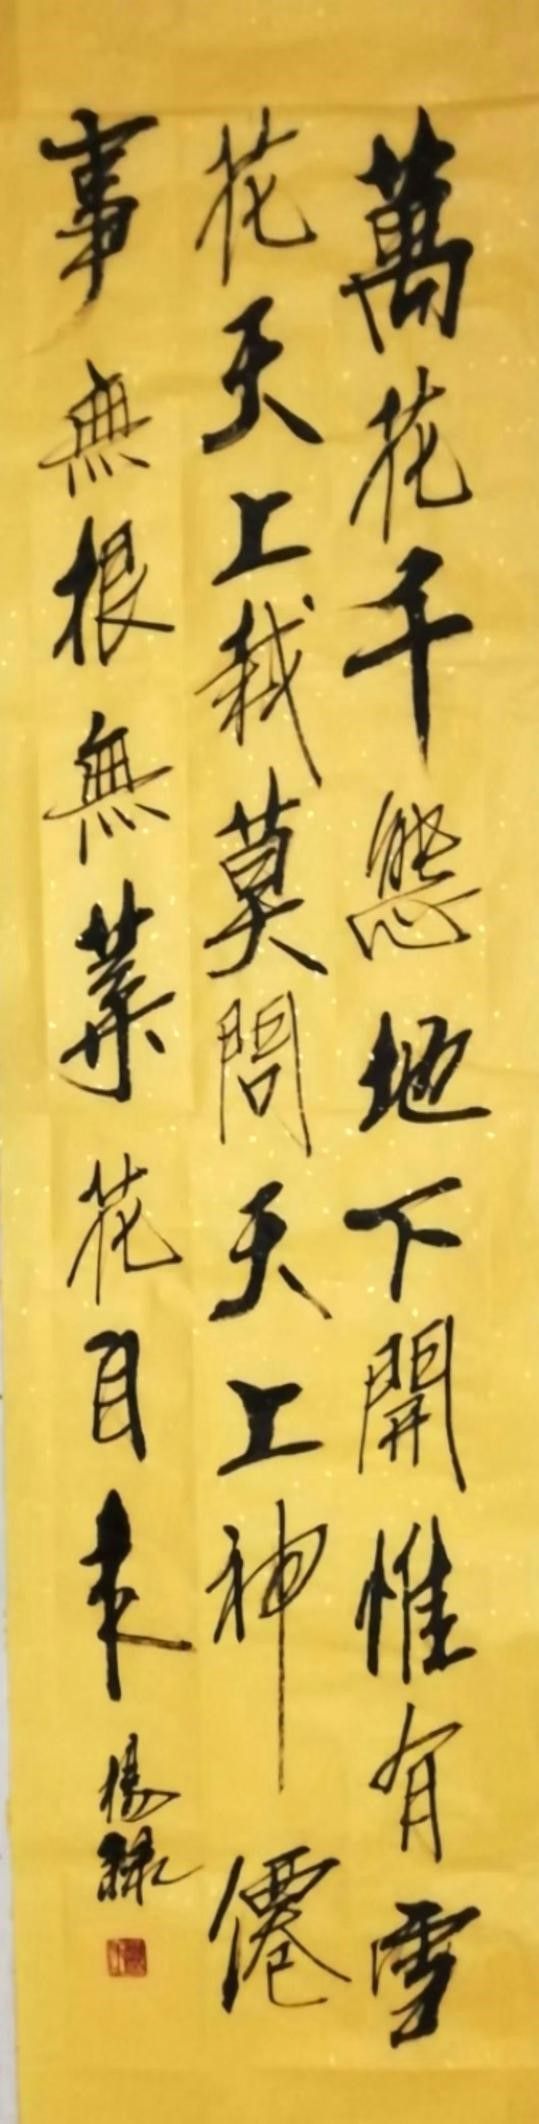 萬花千態地下開惟有雪
花天上栽莫問天上神僊
事無根無葉花自来
楊禄